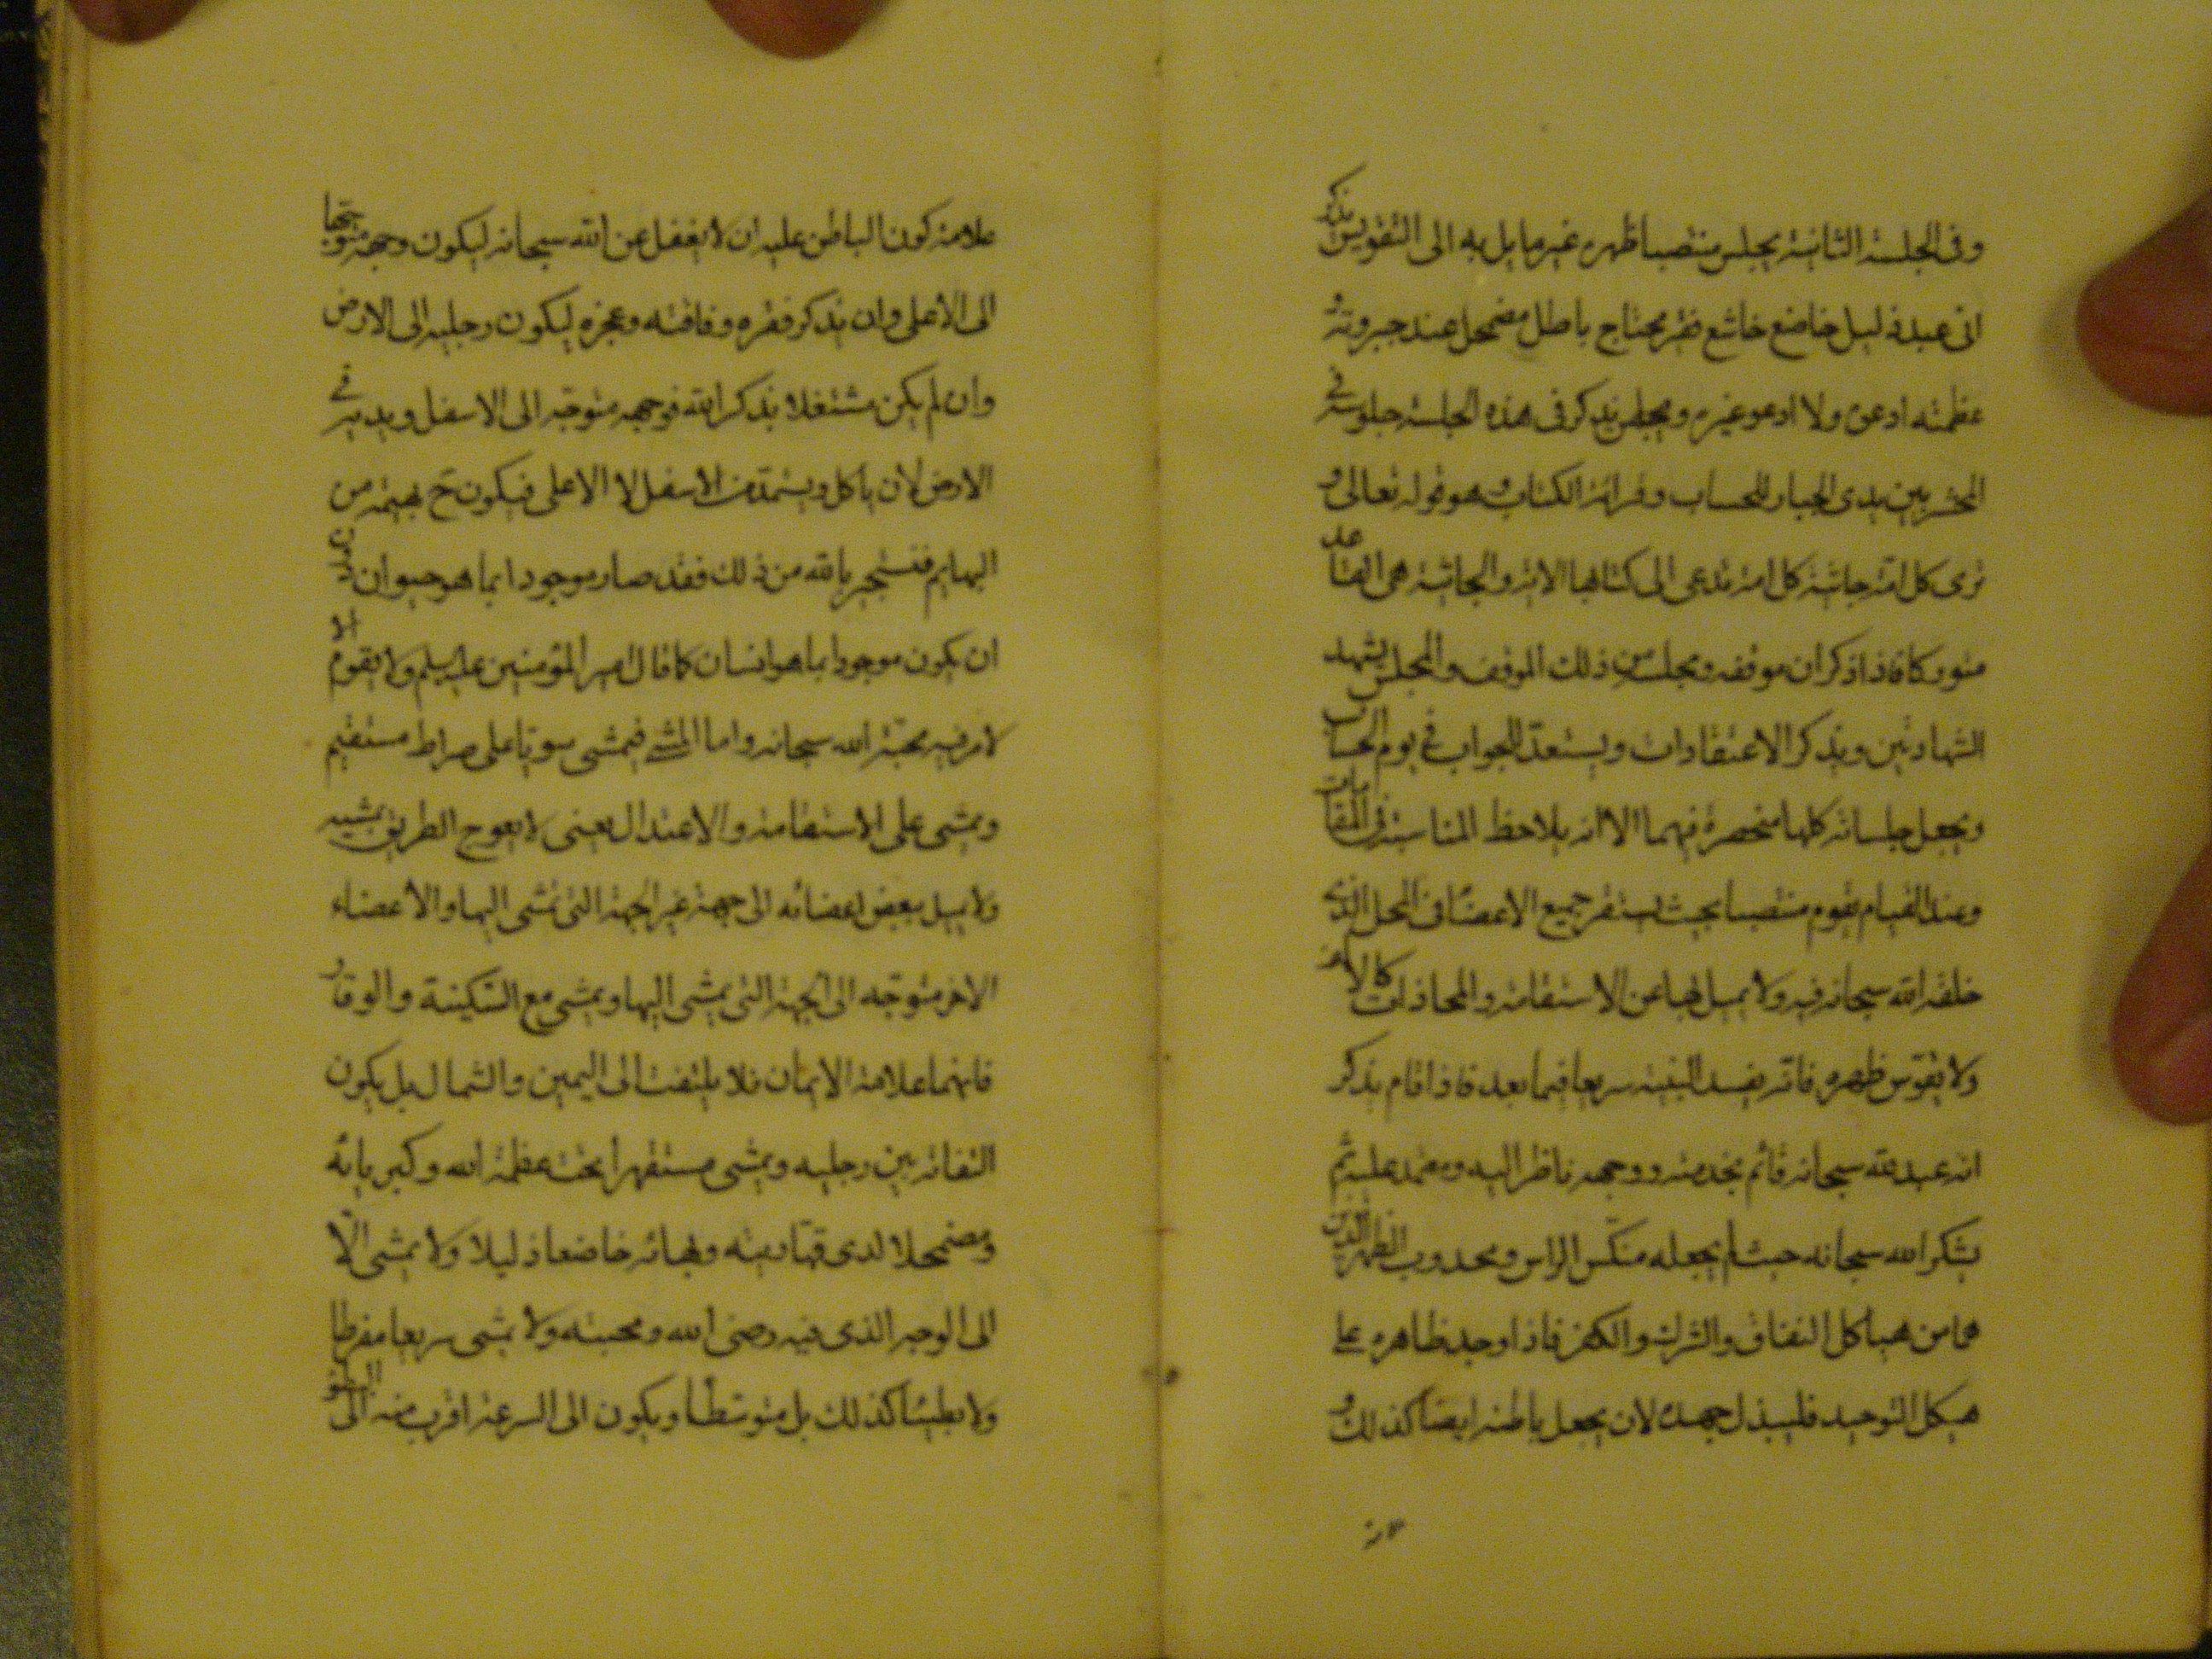 وفى الجلسة الثانية يجلس منتصبا ظهره غير مايل به الى التقويس يذكر
انى عبد ذليل خاضع خاشع فقير محتاج باطل مضمحل عند جبروته و
عظمته ادعوه ولا ادعو غيره ويجلس يذكر فى هذه الجلسة جلوسه فى
المحشر بين يدى الجبار للحساب وقرائة الكتاب وهو قوله تعالى و
ترى كل امة جاثية كل امة تدعى الى كتابها الاية والجاثية هى القاعد
متوركا فاذا ذكر ان موقفه ومجلسه من ذلك الموقف والمجلس يشهد
الشهادتين ويذكر الاعتقادات ويستعد للجواب فى يوم الحساب
ويجعل جلساته كلها منحصرة فيهما الا انه يلاحظ المناسبة فى المقامات
وعند القيام يقوم منتصبا بحيث يستقر جميع الاعضاء فى المحل الذى
خلقه الله سبحانه فيه ولا يميل بها عن الاستقامة والمحاذات كالالف
ولا يقوس ظهره فانه يفسد البنية سريعا فيما بعد فاذا قام يذكر
انه عبد لله سبحانه قائم بخدمته ووجهه ناظر اليه ومعتمد عليه ثم
يشكر الله سبحانه حيث لم يجعله منكس الراس ومحدوب الظهر الذين
هما من هياكل النفاق والشرك والكفر فاذا وجد ظاهره على
هيكل التوحيد فليبذل جهده لان يجعل باطنه ايضا كذلك و
علامة
علامة كون الباطن عليه ان لا يغفل عن الله سبحانه ليكون وجهه متوجها
الى الاعلى وان يذكر فقره وفاقته وعجزه ليكون رجليه الى الارض
وان لم يكن مشتغلا بذكر الله فوجهه متوجه الى الاسفل ويديه فى
الارض لان ياكل ويستمد من الاسفل لا الاعلى فيكون ح بهيمة من
البهايم فنستجير بالله من ذلك فقد صار موجودا بما هو حيوان دون
ان يكون موجودا بما هو انسان كما قال امير المؤمنين عليه السلم ولا يقوم الا
لامر فيه محبة الله سبحانه واما المشى فيمشى سويا على صراط مستقيم
ويمشى على الاستقامة والاعتدال يعنى لا يعوج الطريق بمشيه
ولا يميل بعض اعضائه الى جهة غير الجهة التى يمشى اليها والاعضاء
الاخر متوجه الى الجهة التى يمشى اليها ويمشى مع السكينة والوقار
فانهما علامة الايمان فلا يلتفت الى اليمين والشمال بل يكون
التفاته بين رجليه ويمشى مستقهرا تحت عظمة الله وكبريائه
ومضمحلا لدى قهاريته وبهائه خاضعا ذليلا ولا يمشى الا
الى الوجه الذى فيه رضى الله ومحبته ولا يمشى سريعا مفرطا
ولا بطيئا كذلك بل متوسطا ويكون الى السرعة اقرب منه الى البطؤ